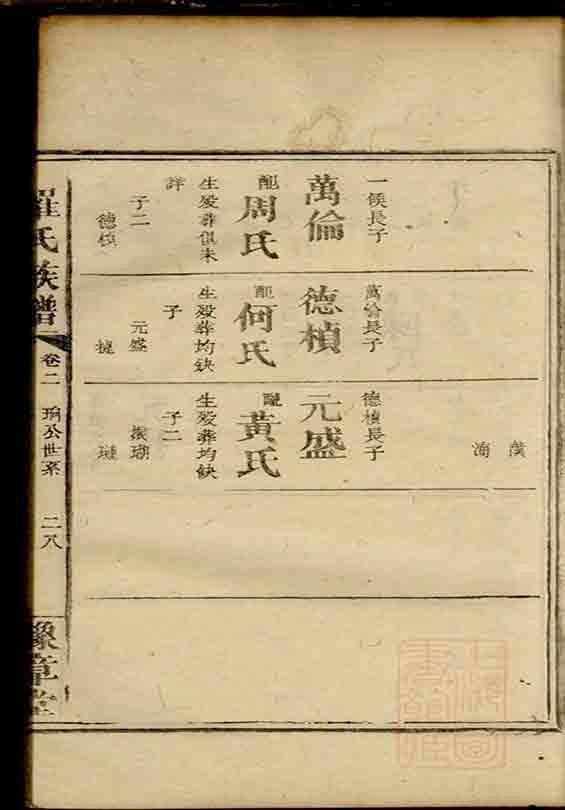 漢
淌
一候長子
萬倫
配
周氏
生歿葬俱未
詳
子二
德楨
萬倫長子
德楨
配
何氏
生歿葬均缺
子
元盛
德楨長子
元盛
配
黃氏
生歿葬均缺
子二
璉
羅氏族譜
卷二
公世系
二八
豫章堂